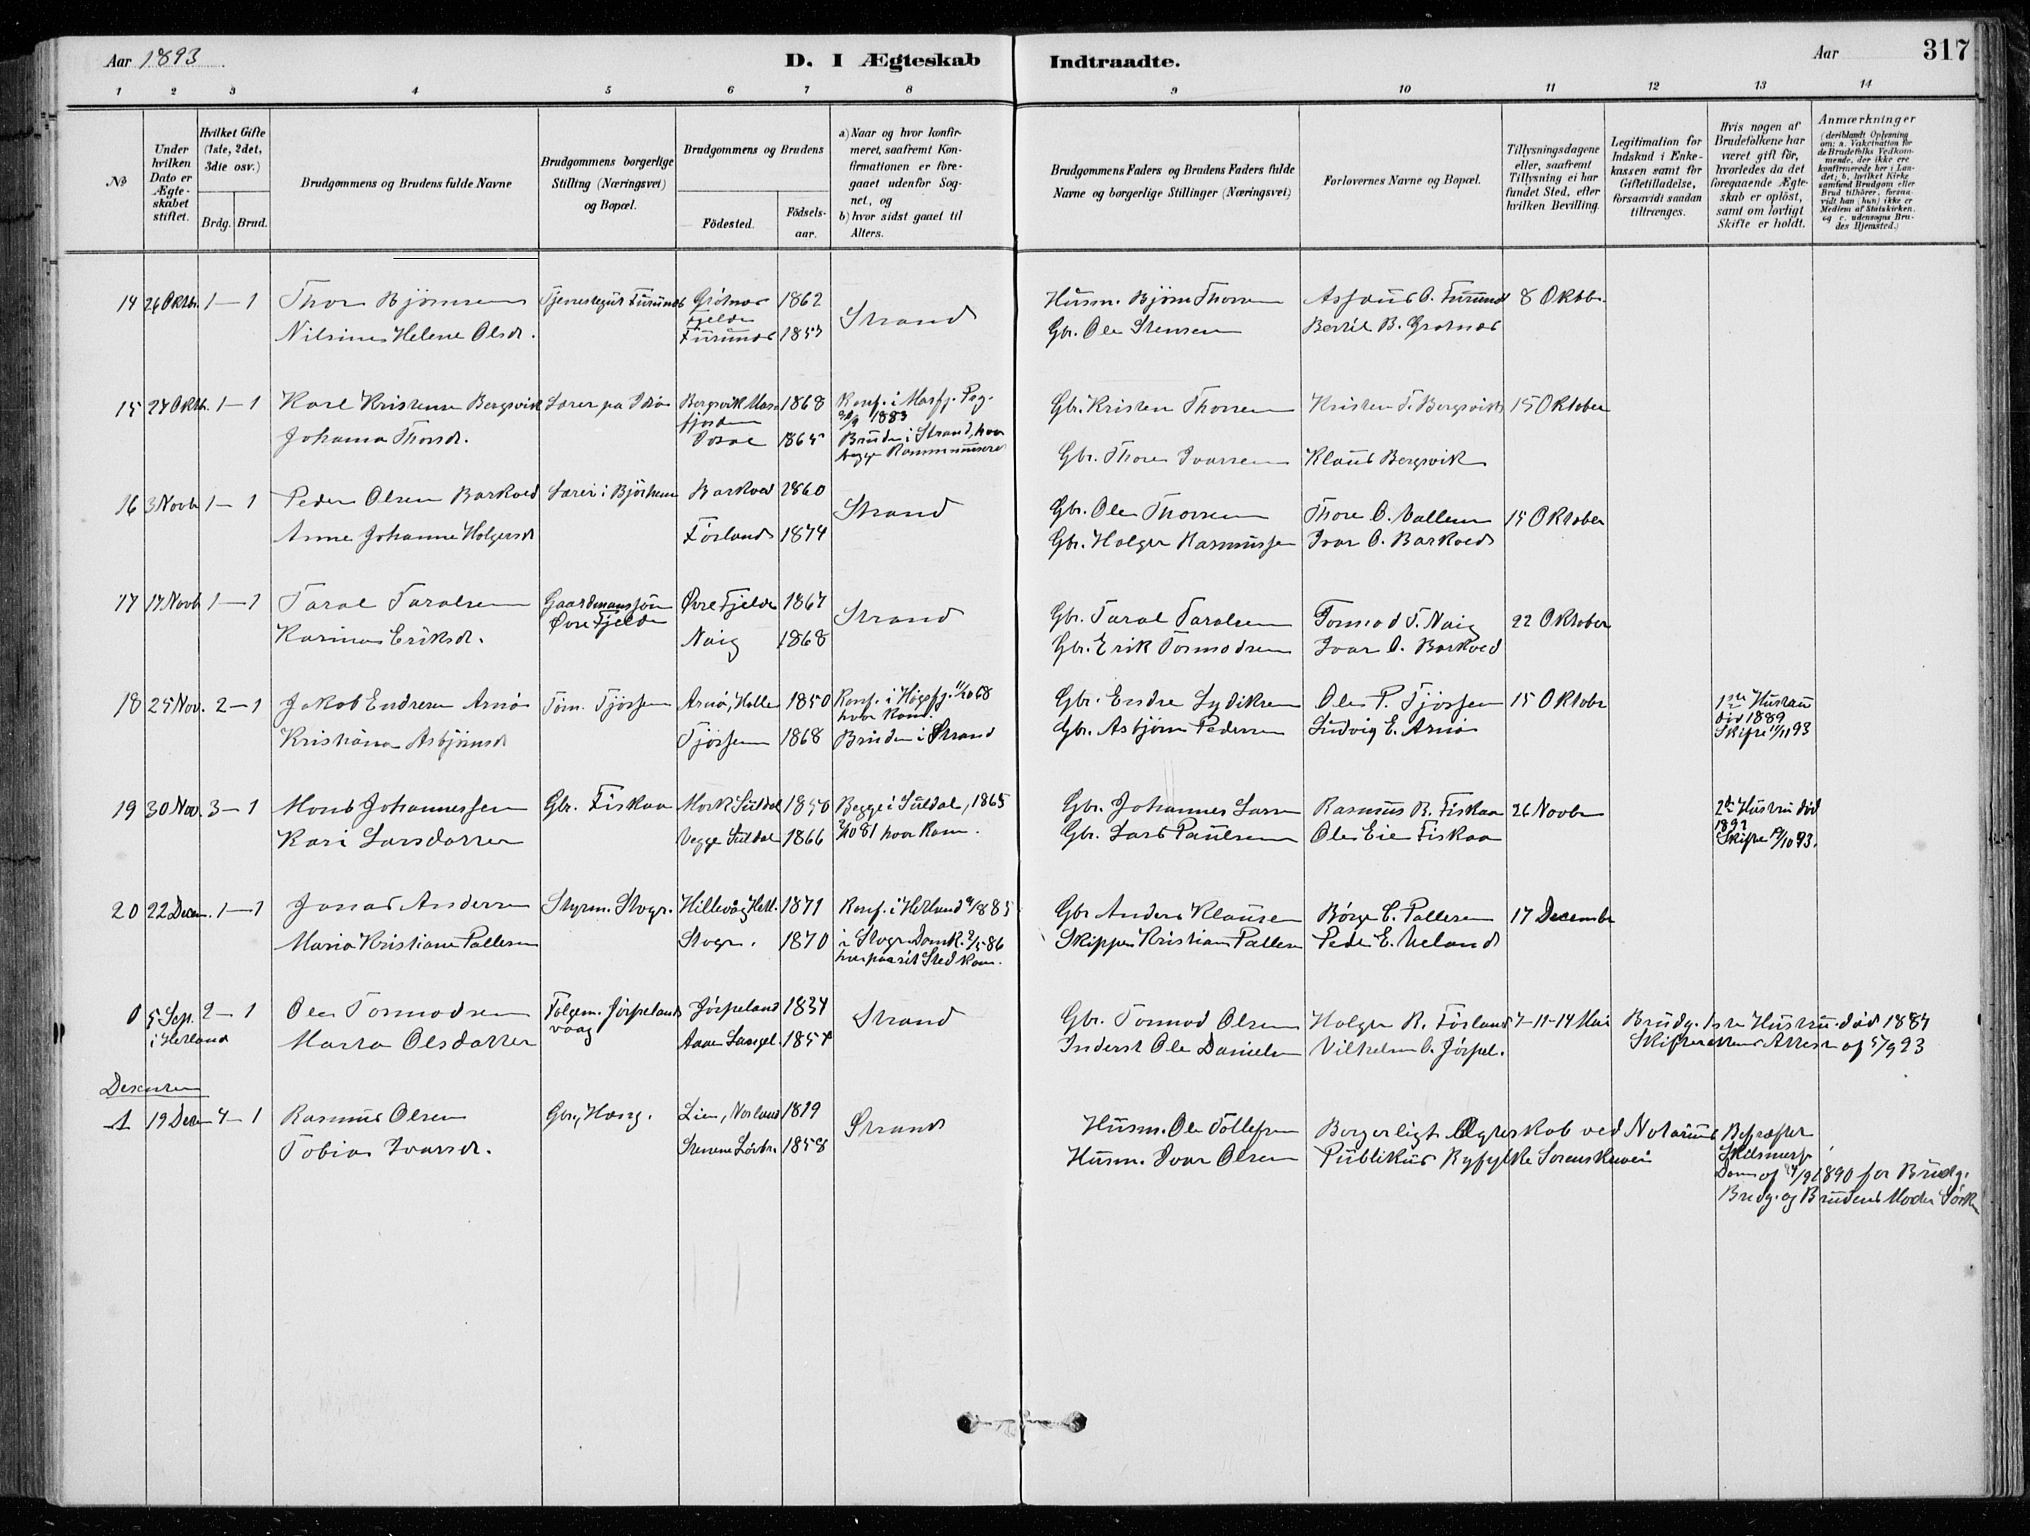 Aar 1893.
D. I Ægteskab Indtraadte.
Aar
317
1 2 3 4 5 6 7 8 9 10 11 12 13 14
No
Under hvilken Dato er Ægteskabet stiftet.
Hvilket Gifte (1ste, 2det, 3die osv.)
Brdg. Brud.
Brudgommens og Brudens fulde Navne
Brudgommens borgerlige Stilling (Næringsvei) og Bopæl.
Brudgommens og Brudens
Födested.
Födselsaar.
a) Naar og hvor konfirmeret, saafremt Konfirmationen er foregaaet udenfor Sognet, og
b) hvor sidst gaaet til Alters.
Brudgommens Faders og Brudens Faders fulde Navne og borgerlige Stillinger (Næringsvei)
Forlovernes Navne og Bopæl.
Tillysningsdagene eller, saafremt Tillysning ei har fundet Sted, efter hvilken Bevilling.
Legitimation for Indskud i Enkekassen samt for Giftetilladelse, forsaavidt saadan tiltrænges.
Hvis nogen af Brudefolkene har været gift för, hvorledes da det foregaaende Ægteskab er oplöst, samt om lovligt Skifte er holdt.
Anmærkninger (deriblandt Oplysning om: a. Vakcination for de Brudefolks Vedkommende, der ikke ere konfirmerede her i Landet; b. hvilket Kirkesamfund Brudgom eller Brud tilhörer, forsaavidt han (hun) ikke er Medlem af Statskirken, og c. udensogns Brudes Hjemsted.)
14 26 Oktbr. 1 — 1 Thore Bjørnsen Tjenestegut Furunes Grötnes 1862 Strand Husm. Bjørn Thorsen Asgaut O. Furunes 8 Oktbr.
Fjelde
Nilsine Helene Olsdr. Furunes 1853 Gbr. Ole Stensen Bertil B. Grötnes
15 27 Oktb. 1 — 1 Karl Kristensen Bergsvik Lærer paa Idsø Bergsvik Mas 1868 Konf. i Masfj. Prg. Gbr. Kristen Thorsen Kristen T. Bergsvik 15 Oktober
fjorden 30/9 1883
Johanna Thorsdr. Idsøe 1865 Bruden i Strand, hvor
begge Kommuniserer Gbr. Thore Ivarsen Klaus Bergsvik
16 3 Novb 1 — 1 Peder Olsen Barkved Lærer i Bjørheim Barkved 1860 Strand Gbr. Ole Thorsen Thore O. Vallem 15 Oktober
Anne Johanne Holgersd Førland 1874 Gbr. Holger Rasmussen Ivar O. Barkved
17 17 Novb 1 — 1 Taral Taralsen Gaardmanssøn Øvre Fjelde 1867 Strand Gbr. Taral Taralsen Tormod T. Naig 22 Oktober
Øvre Fjelde
Karina Eriksd. Naig 1868 Gbr. Erik Tormodsen Ivar O. Barkved
18 25 Nov. 2 — 1 Jakob Endresen Arnø Töm. Tjøssem Arnø, Halle 1850 Konf. i Høgsfj. 11/10 68 Gbr. Endre Lydiksen Ole P. Tjøssem 15 Oktobr 1ste Hustru
hvor Kom. død 1889
Kristiane Asbjørnsd Tjøssem 1868 Bruden i Strand Gbr. Asbjørn Pedersen Ludvig E. Arnø Skifte 11/11 93
19 30 Nov. 3 — 1 Mons Johannessen Gbr. Fiskaa Mork Suldal 1850 Begge i Suldal, 1865 Gbr. Johannes Larsen Rasmus R. Fiskaa 26 Novbr 2den Hustru död
1892
Kari Larsdatter Vegge Suldal 1866 2/10 81 hvor Kom. Gbr. Lars Paulsen Ole Eie Fiskaa Skifte 19/10 93.
20 22 Decem. 1 — 1 Jonas Andersen Styrm. Stvgr. Hillevåg Hetl. 1871 Konf. i Hetland 9/8 85 Gbr Anders Klausen Børge C. Pallesen 17 Decembr
Maria Kristiane Pallesen Stvgr. 1870 i Stvgr Domk. 2/5 86 Skipper Kristian Pallesen Peder E. Meland
hver paa sit Sted kom.
0 5 Sep. 2 — 1 Ole Tormodsen Følgem. Jørpelands Jørpeland 1834 Strand Gbr. Tormod Olsen Holger R. Førland 7-11-14 Mai Brudg. 1ste Hustru død 1887
i Hetland vaag
Marta Olsdatter Aase Langel. 1854 Inderst Ole Danielsen Vilhelm O. Jørpel. Skifterettens Attest af 5/9 93
Desuten
1 19 Decem 4 — 1 Rasmus Olsen Gbr, Haug. Lien, Norland 1819 Strand Husm. Ole Tollefsen Borgerligt Ægteskab ved Notarius Bekræftet
Tobia Ivarsd. Stenene Lørbr. 1858 Husm. Ivar Olsen Publikus Ryfylke Sorenskriveri Skilsmisse
Dom af 24/9 1890 for Brudg.
Brudg. og Brudens Moder Søsk